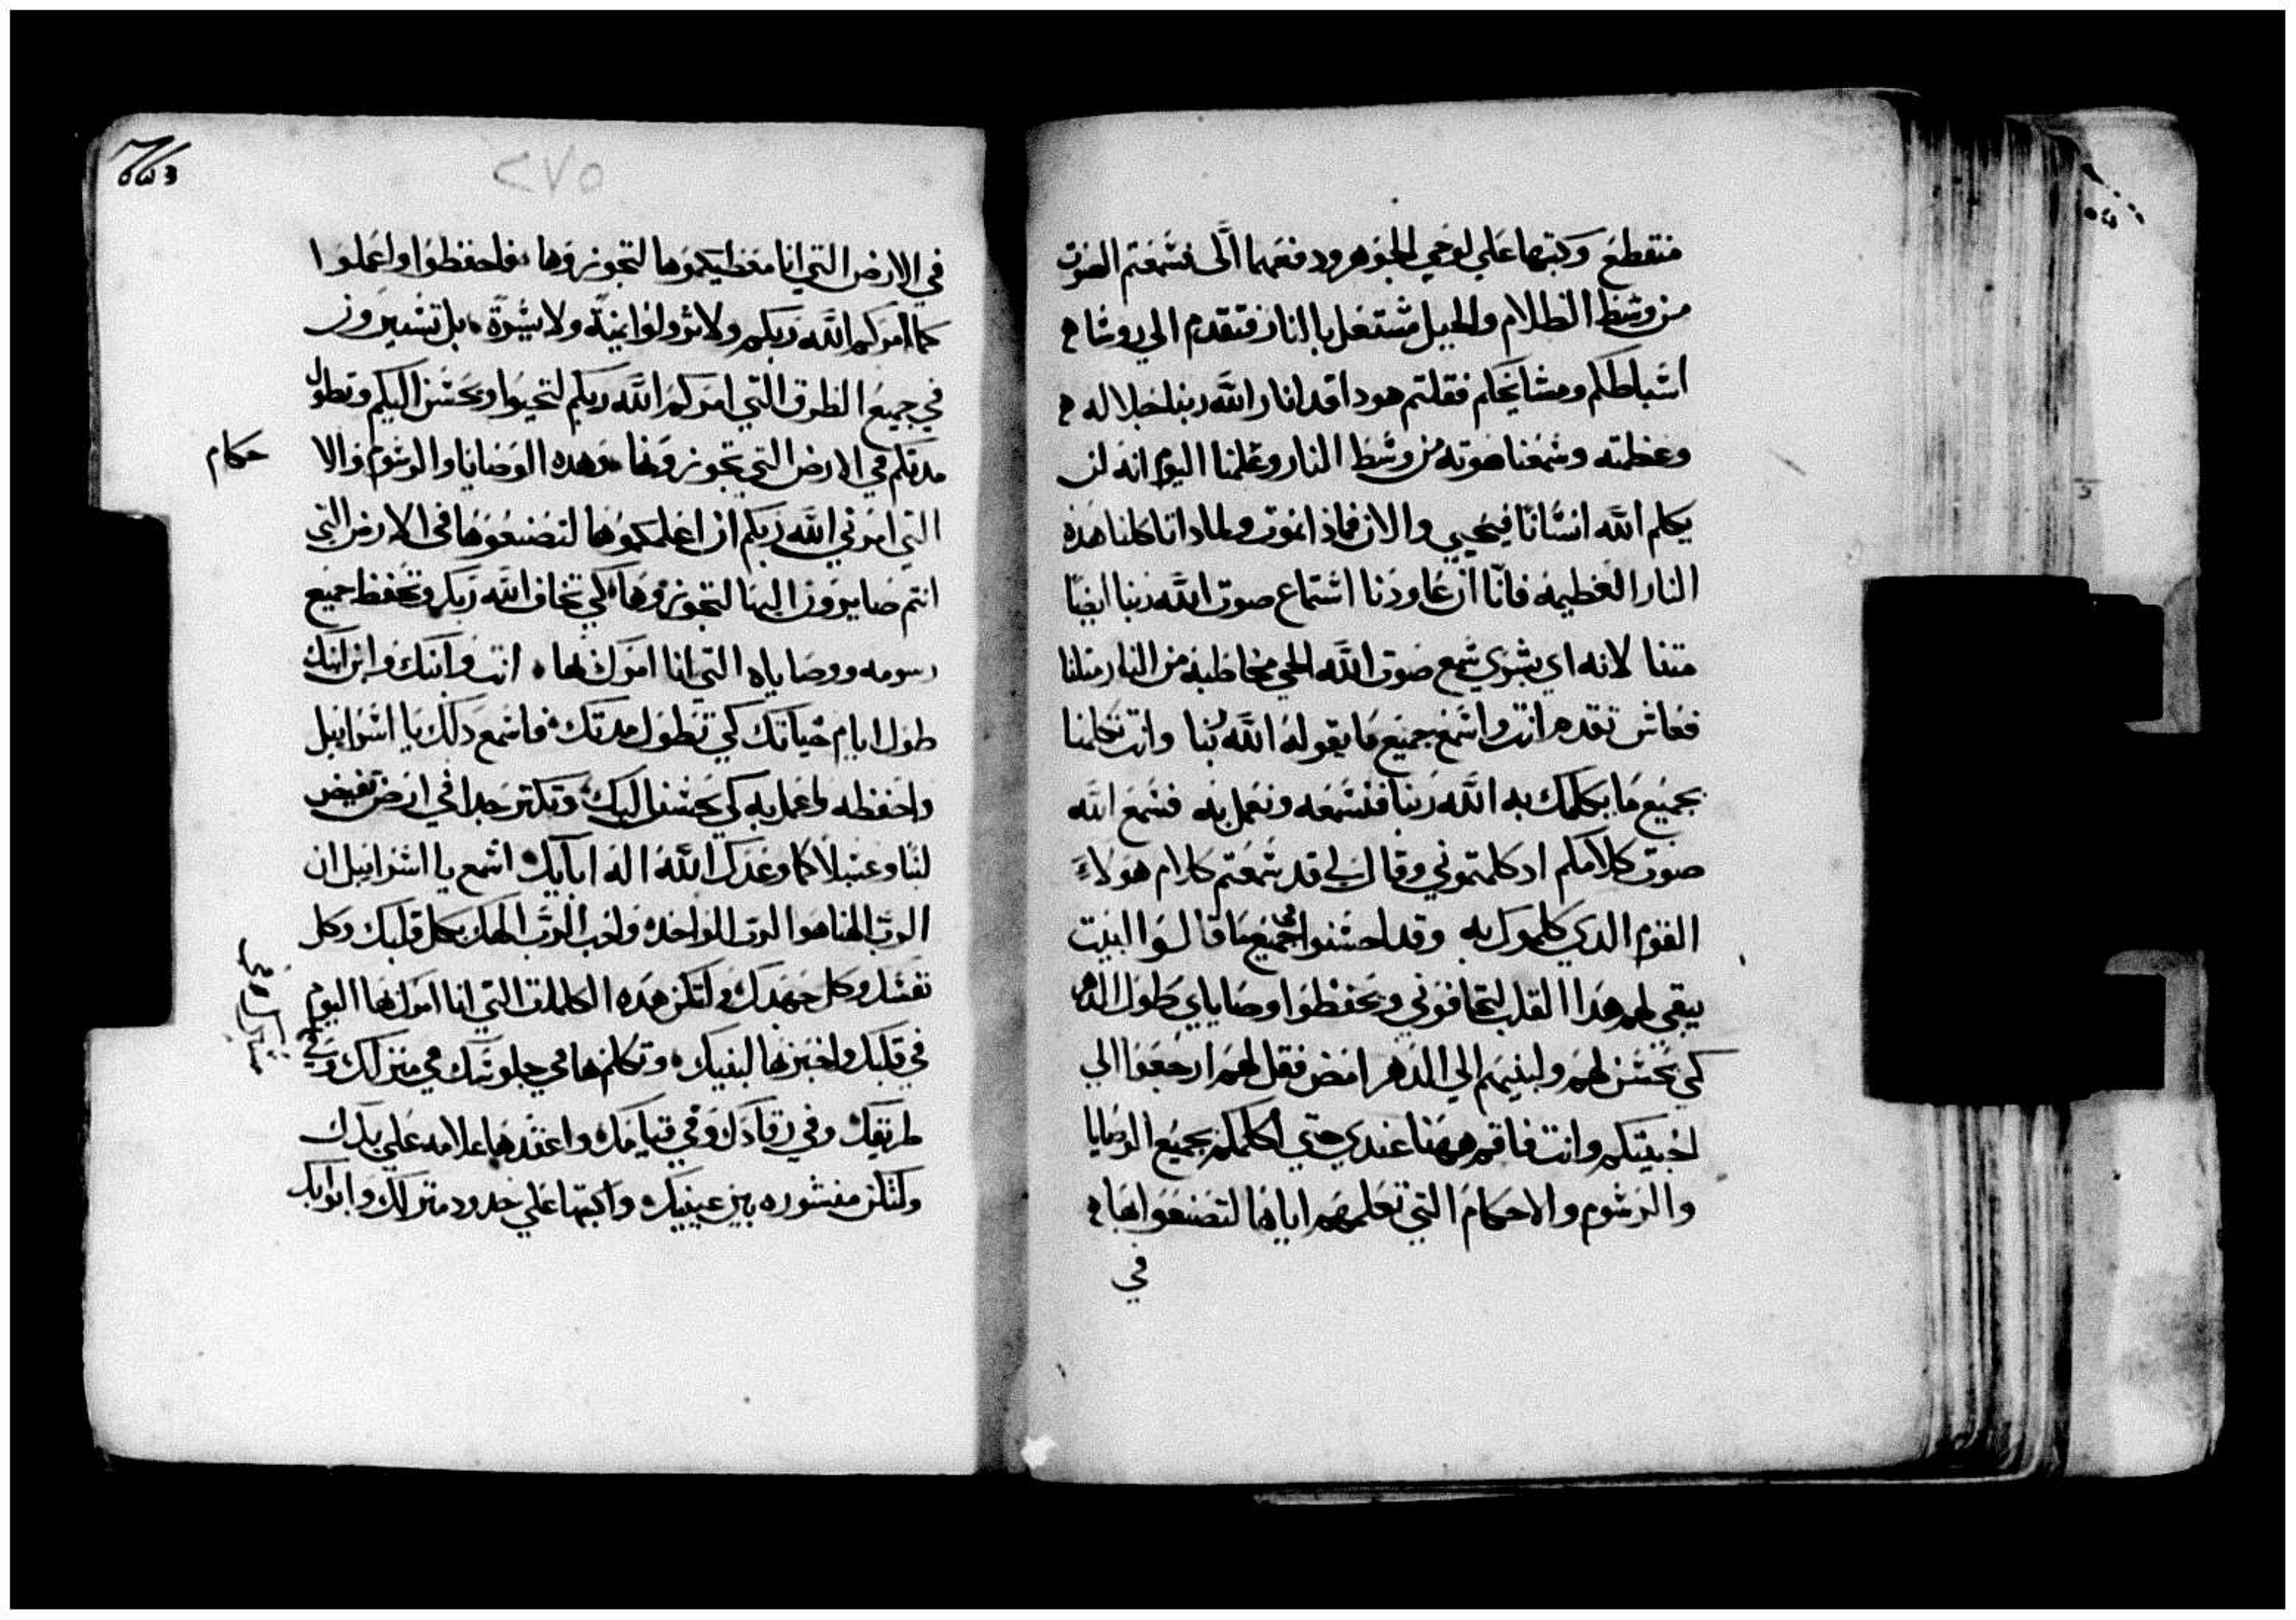 منقطع وكتبها على لوحي الجوهر ودفعهما الَّى فسمعتم الصوت
من وسط الظلام والجبل مشتعل بالنار فتقدم الي روسا
اسباطكم ومشايخكم فقلتم هودا قد انار الله ربنا جلاله
وعظمته وسمعنا صوته من وسط النار وعلمنا اليوم انه لن
يكلم الله انسانا فيحيي والان فماذا نموت ولماذا تاكلنا هذه
النار العظيمه فانّا ان عاودنا استماع صوت الله ربنا ايضًا
متنا لانه اي بشري سمع صوت الله الحي مخاطبه من النار مثلنا
فعاش تقدم انت واسمع جميع ما يقوله الله ربنا وانت تكلمنا
بجميع ما يكلمك به الله ربنا فنسمعه ونعمل به فسمع الله
صوت كلامكم اد كلمتموني وقال لي قد سمعتم كلام هولاء
القوم الدي كلموك به وقد احسنوا في جميع ما قالوا البيت
يبقي لهم هدا القلب لتخافوني ويحفظوا وصاياي طول الدهر
كي يحسن لهم ولبنيهم الي الدهر امض فقل لهم ارجعوا الي
اخبيتكم وانت فاقم ههنا عندي حتي اكلمكم بجميع الوصايا
والرسوم والاحكام التي تعلمهم اياها لتصنعوا بها
في
٢٧٥
في الارض التي انا معطيكموها لتحوزوها فاحفظوا واعملوا
كما امركم الله ربكم ولا تزولوا يمنة ولا يسرة بل تسيرون
في جميع الطرق التي امركم الله ربكم لتحيوا ويحسن اليكم وتطول
مدتكم في الارض التي تحوزوها وهده الوصايا والرسوم والا
حكام
التي امرني الله ربكم ان اعلمكموها لتصنعوها في الارض التي
انتم صايرون اليها لتحوزوها كي تخاف الله ربك وتحفظ جميع
رسومه ووصاياه التي انا امرك بها انت وابنك وابن ابنك
طول ايام حياتك كي تطول مدتك فاسمع دلك يا اسرايل
واحفظه واعمل به كي يحسن اليك وتكتر جدا في ارض تفيض
لبنا وعسلا كما وعدك الله اله ابايك اسمع يا اسراييل ان
الرب الهنا هو الرب الواحد واحب الرب الهك بكل قلبك وكل
نفسك وكل جهدك ولتكن هده الكلمات التي انا امرك بها اليوم
في قلبك واخبر بها لبنيك وتكلم بها في جلوسك في منزلك وفي
طريقك وفي رقادك وفي قيامك واعقدها علامه علي يدك
ولتكن منشوره بين عينيك واكتبها علي حدود منزلك وابوابك